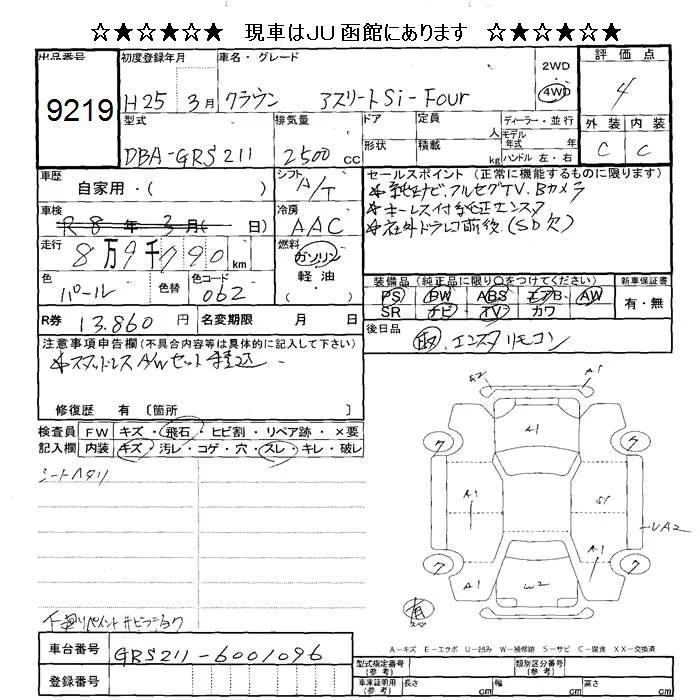 ☆★☆★☆★ 現車はJU函館にあります ☆★☆★☆★
出品番号 初度登録年月 車名・グレード 2WD 評価点
9219 H25 3月 クラウン アスリートSi-Four 4WD 4
型式 排気量 ドア 定員 人 ディーラー・並行 外装 内装
DBA-GRS211 2500 cc 形状 積載 kg モデル年式 年式 ハンドル 左・右 C C
車歴 自家用・( ) シフト A/T
セールスポイント (正常に機能するものに限ります)
純正ナビ、フルセグTV、Bカメラ
キーレス付 純正エンスタ
社外ドラレコ前後(SD欠)
車検 R8年3月( 日) 冷房 AAC
走行 8万9千790 km 燃料 ガソリン 軽油 ( )
色 パール 色替 色コード 062
装備品 (純正品に限り○をつけてください) 新車保証書
PS PW ABS エアB AW 有・無
SR ナビ TV カワ
R券 13,860円 名変期限 月 日
後日品 取、エンスタリモコン
注意事項申告欄(不具合内容等は具体的に記入して下さい)
スタッドレスA/Wセット積込
修復歴 有 〔箇所 〕
検査員 FW キズ・飛石・ヒビ割・リペア跡・×要
記入欄 内装 キズ・汚レ・コゲ・穴・スレ・キレ・破レ
シートヘタリ
A2 A1
A1
ワ ワ
A1 S1
UA2
A1
ワ ワ
A1 W2
有 スペ
下廻リペイント サビ
A-キズ E-エクボ U-凹み W-補修跡 S-サビ C-腐食 XX-交換済
車台番号 GRS211-6001096
登録番号
型式指定番号(参考) 類別区分番号(参考)
車庫証明用(参考) 長さ cm 幅 cm 高さ cm